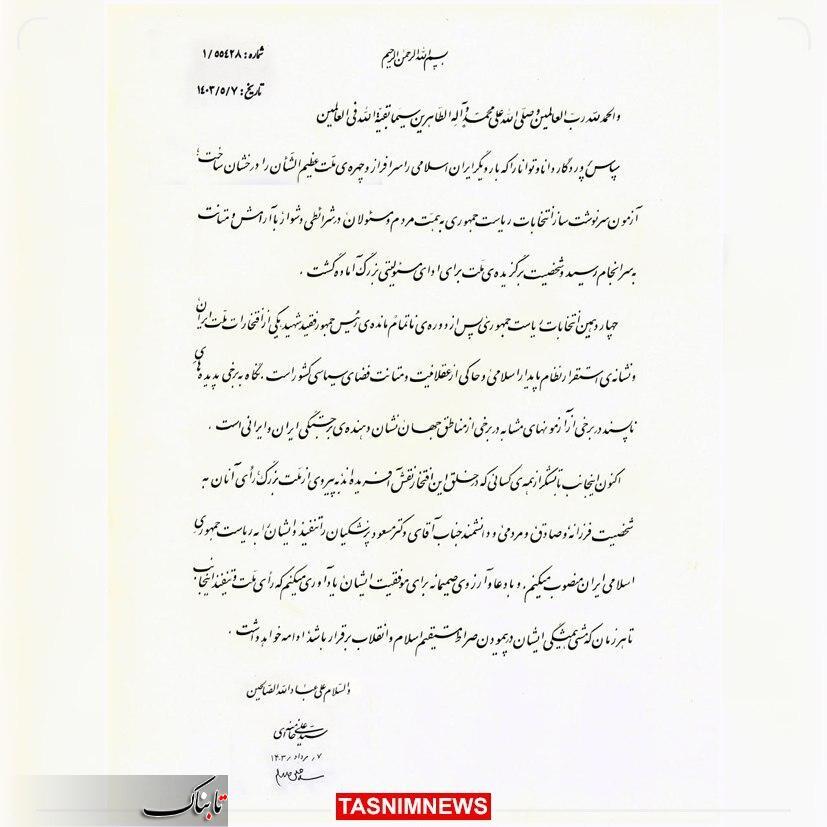 بسم الله الرحمن الرحیم
شماره: ۱/۵۵۴۲۸
تاریخ: ۱۴۰۳/۵/۷
والحمدلله رب العالمین وصلی الله علی محمد و آله الطاهرین سیما بقیة الله فی العالمین
سپاس پروردگار دانا و توانا را که بار دیگر ایران اسلامی را سرافراز و چهره‌ی ملت عظیم الشأن را درخشان ساخت؛
آزمون سرنوشت‌ساز انتخابات ریاست جمهوری به همت مردم و مسئولان در شرائطی دشوار با آرامش و متانت
به سرانجام رسید و شخصیت برگزیده‌ی ملت برای ادای مسئولیتی بزرگ آماده گشت .
چهاردهمین انتخابات ریاست جمهوری پس از دوره‌ی ناتمام مانده‌ی رئیس جمهور فقید شهید یکی از افتخارات ملت ایران
و نشانه‌ی استقرار نظام پایدار اسلامی و حاکی از عقلانیت و متانت فضای سیاسی کشور است . نگاه به برخی پدیده‌های
ناپسند در برخی از آزمونهای مشابه در برخی از مناطق جهان نشان دهنده‌ی برجستگی ایران و ایرانی است .
اکنون اینجانب با تشکر از همه‌ی کسانی که در خلق این افتخار نقش آفریده‌اند به پیروی از ملت بزرگ رأی آنان به
شخصیت فرزانه و صادق و مردمی و دانشمند جناب آقای دکتر مسعود پزشکیان را تنفیذ و ایشان را به ریاست جمهوری
اسلامی ایران منصوب میکنم. و با دعا و آرزوی صمیمانه برای موفقیت ایشان یادآوری میکنم که رأی ملت و تنفیذ اینجانب
تا هر زمان که مشی همیشگی ایشان در پیمودن صراط مستقیم اسلام و انقلاب برقرار باشد ادامه خواهد داشت .
والسلام علی عباد الله الصالحین
سید علی خامنه‌ای
۷ مرداد ۱۴۰۳
تابناک
TASNIMNEWS